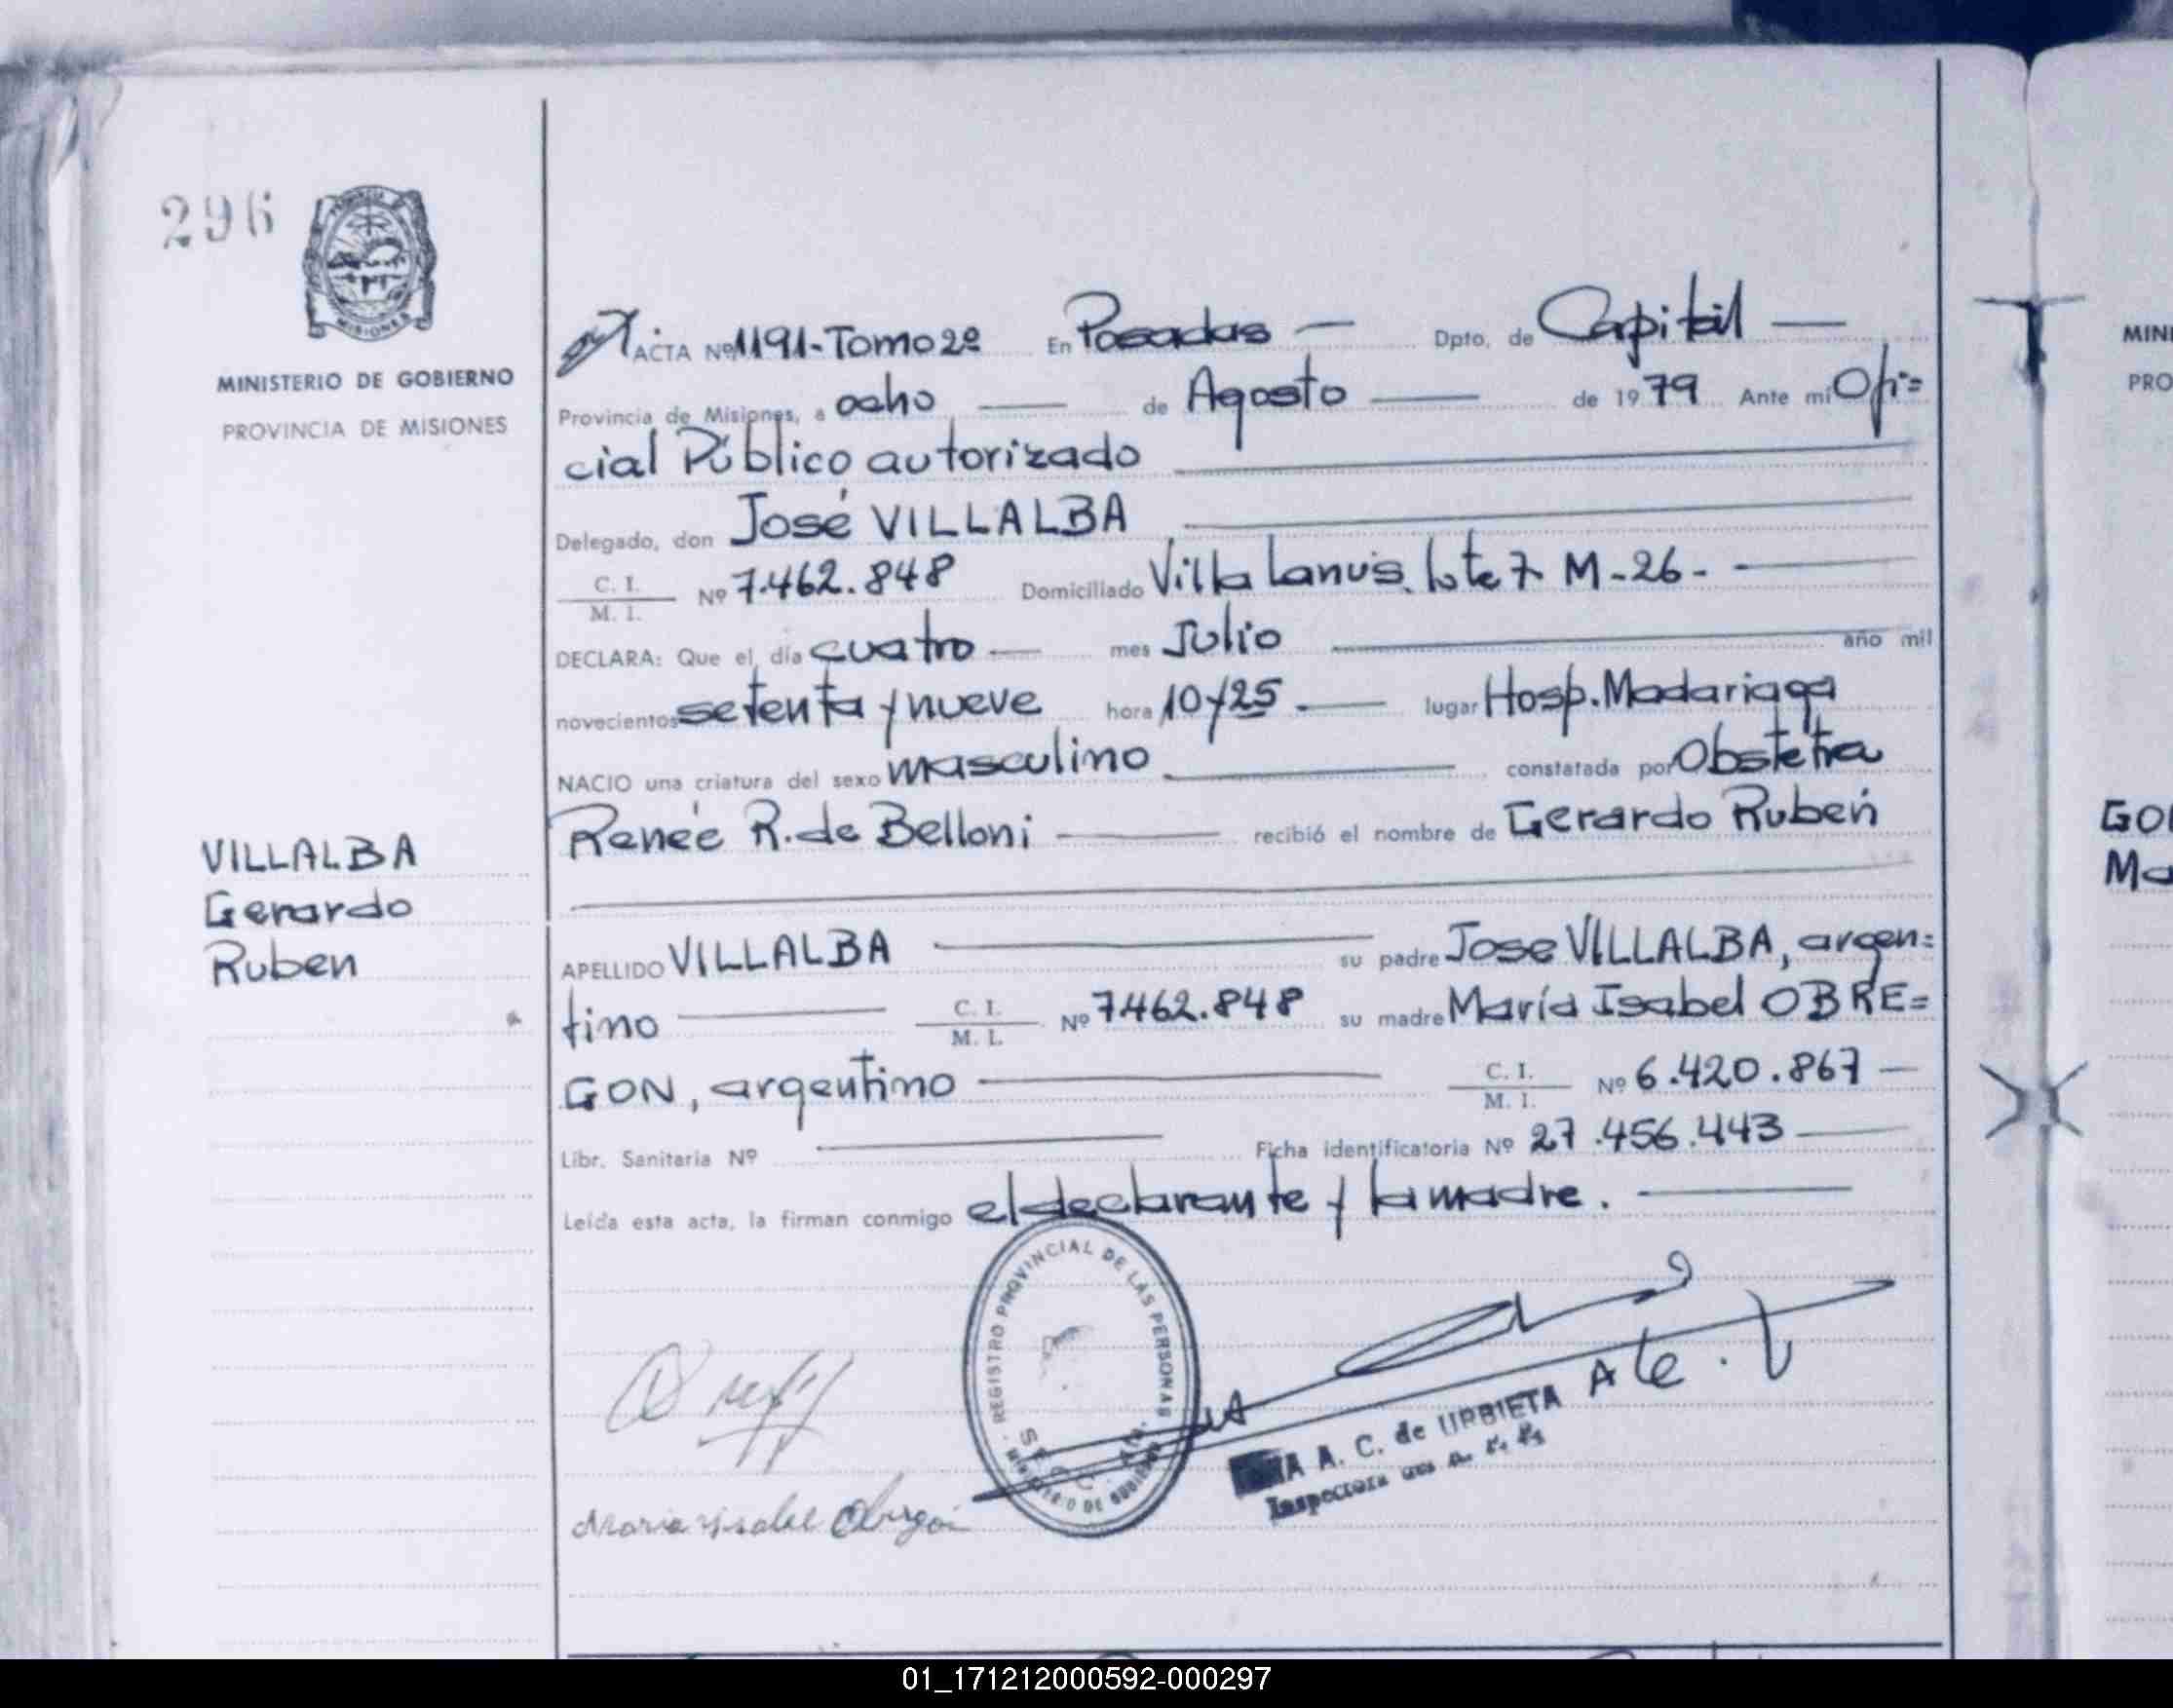 296
MISIONES
MINISTERIO DE GOBIERNO
PROVINCIA DE MISIONES
ACTA Nº 1191-Tomo 2º En Posadas — Dpto. de Capital —
Provincia de Misiones, a ocho — de Agosto — de 1979 Ante mi Ofi=
cial Público autorizado
Delegado, don José VILLALBA
C. I.
M. I. Nº 7.462.848 Domiciliado Villa Lanús. lote 7 M-26- —
DECLARA: Que el día cuatro — mes Julio — año mil
novecientos setenta y nueve hora 10y25.— lugar Hosp. Madariaga
NACIO una criatura del sexo masculino — constatada por Obstetra
Renée R. de Belloni — recibió el nombre de Gerardo Rubén
VILLALBA
Gerardo
Ruben
APELLIDO VILLALBA — su padre Jose VILLALBA, argen=
tino — C. I.
M. I. Nº 7.462.848 su madre María Isabel OBRE=
GON, argentino — C. I.
M. I. Nº 6.420.867 —
Libr. Sanitaria Nº — Ficha identificatoria Nº 27.456.443 —
Leída esta acta, la firman conmigo el declarante y la madre. —
REGISTRO PROVINCIAL DE LAS PERSONAS
MINISTERIO DE GOBIERNO
A. C. de URBIETA
Inspectora
Maria Ysabel Obregon
MINI
PRO
GO
Ma
01_171212000592-000297